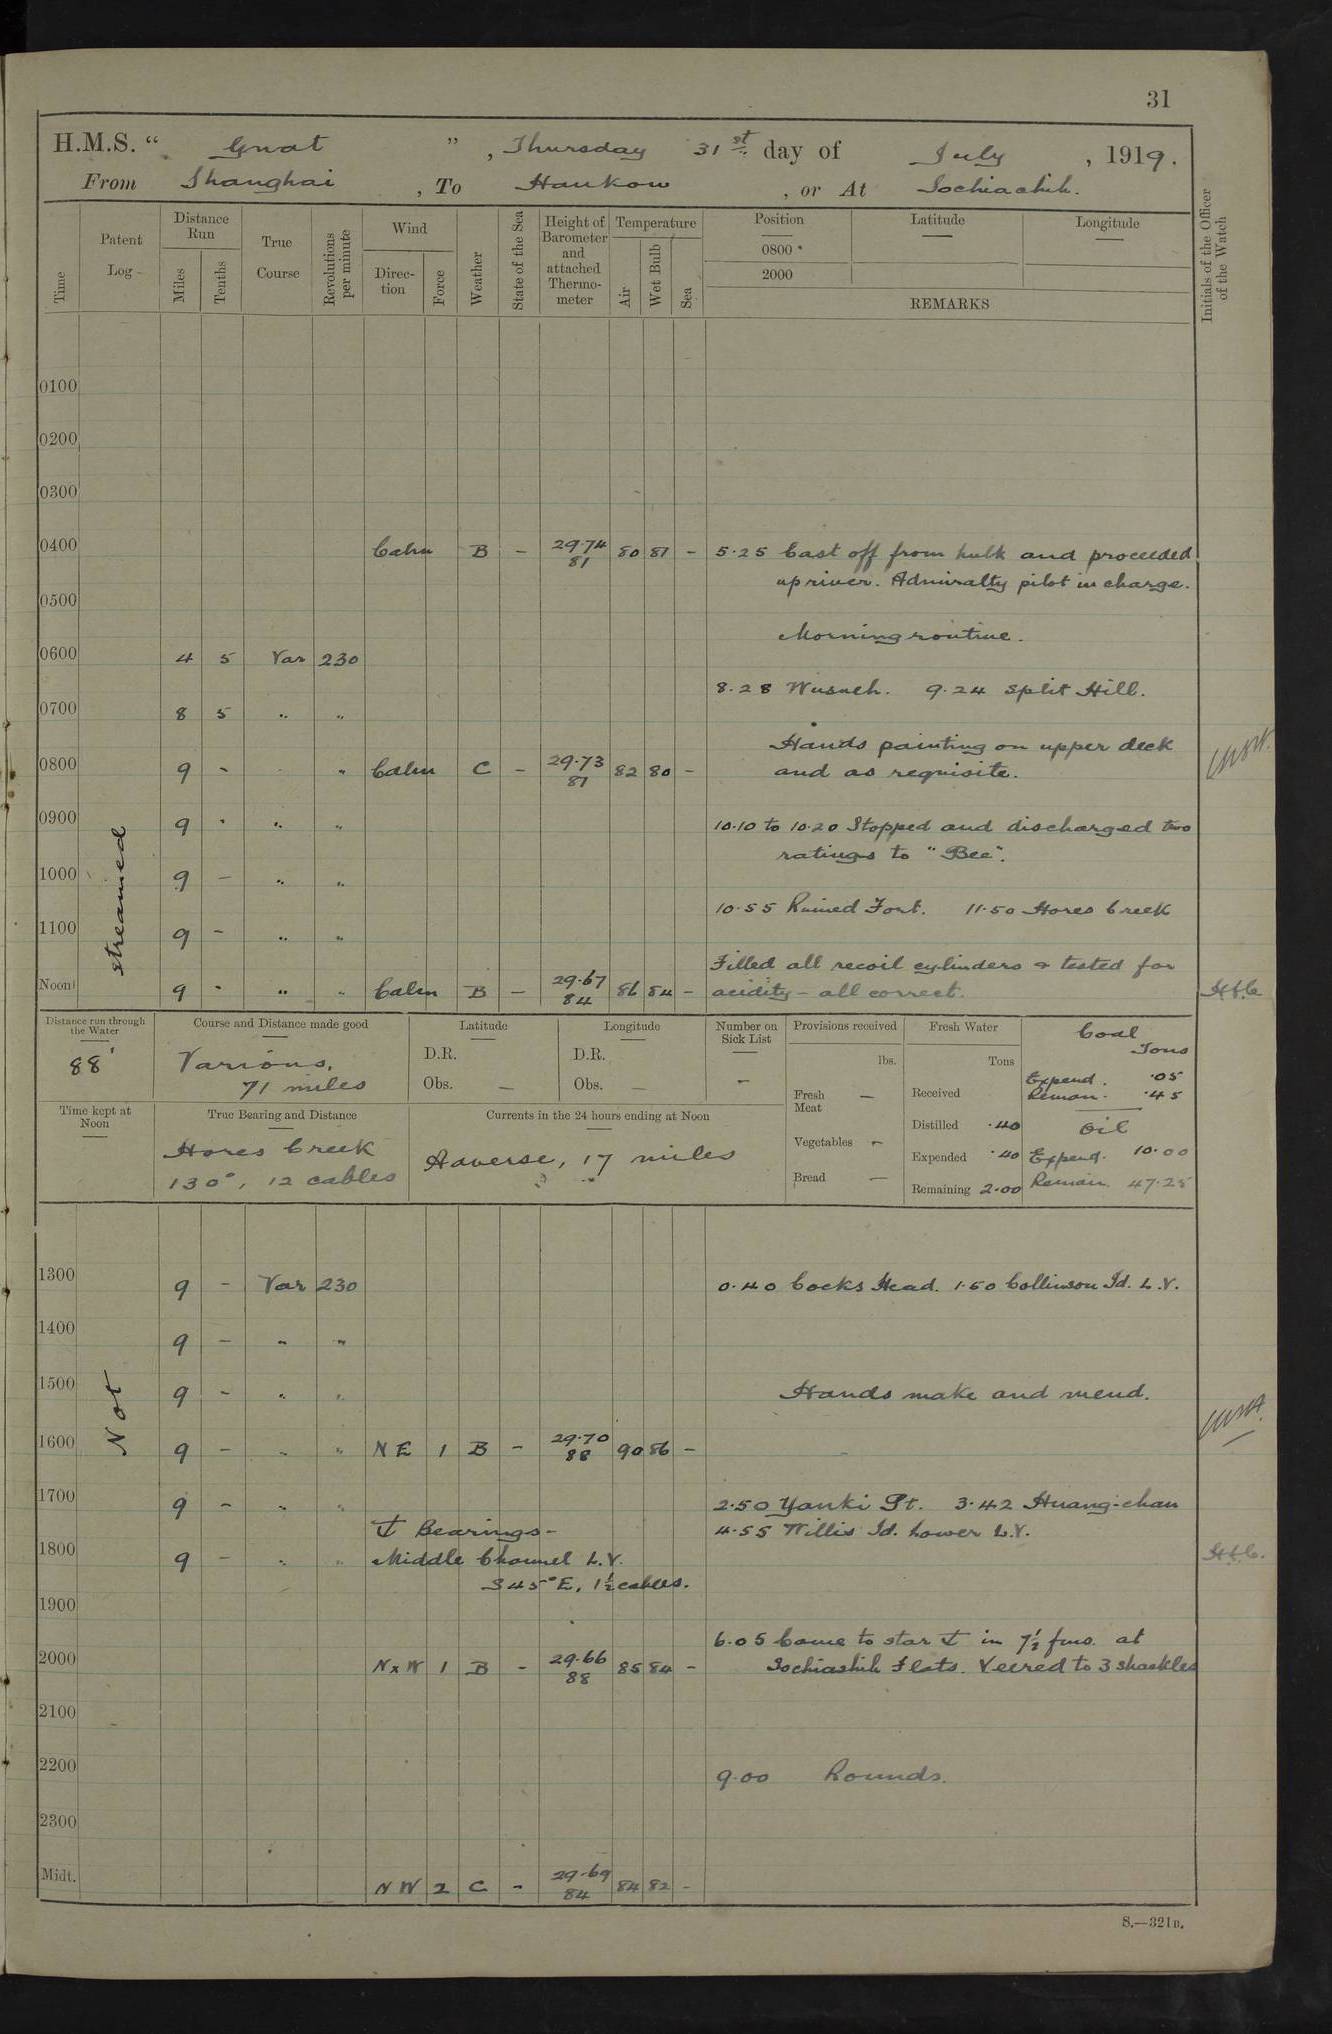 31
H.M.S. " Gnat ", Thursday 31st day of July, 1919.
From Shanghai, To Hankow, or At Sochiachih.
Time
Patent Log
Distance Run
Miles
Tenths
True Course
Revolutions per minute
Wind
Direction
Force
Weather
State of the Sea
Height of Barometer and attached Thermometer
Temperature
Air
Wet Bulb
Sea
Position
Latitude
Longitude
0800
2000
REMARKS
Initials of the Officer of the Watch
0100
0200
0300
0400 Calm B - 29.74 81 80 81 - 5.25 Cast off from hulk and proceeded
up river. Admiralty pilot in charge.
0500
Morning routine.
0600 4 5 Var 230
8.28 Wusueh. 9.24 Split Hill.
0700 8 5 " "
Hands painting on upper deck
0800 9 - " Calm C - 29.73 81 82 80 - and as requisite.
0900 9 - " " 10.10 to 10.20 Stopped and discharged two
ratings to "Bee".
1000 9 - " "
10.55 Ruined Fort. 11.50 Hores Creek
1100 9 - " "
streamed
Filled all recoil cylinders & tested for
Noon 9 - " " Calm B - 29.67 84 86 84 - acidity - all correct.
Distance run through the Water
88'
Course and Distance made good
Various,
71 miles
Latitude
D.R.
Obs. -
Longitude
D.R.
Obs. -
Number on Sick List
-
Provisions received
lbs.
Fresh Meat -
Vegetables -
Bread -
Fresh Water
Tons
Received
Distilled .40
Expended .40
Remaining 2.00
Coal
Tons
Expend. .05
Remain. .45
Oil
Expend. 10.00
Remain. 47.25
Time kept at Noon
True Bearing and Distance
Hores Creek
130°, 12 cables
Currents in the 24 hours ending at Noon
Adverse, 17 miles
1300 9 - Var 230 0.40 Cocks Head. 1.50 Collinson Id. L.V.
1400 9 - " "
1500 9 - " " Hands make and mend.
Not
1600 9 - " " N E 1 B - 29.70 88 90 86 -
1700 9 - " " 2.50 Yanki Pt. 3.42 Huang-chau
⚓ Bearings - 4.55 Willis Id. Lower L.V.
1800 9 - " " Middle Channel L.V.
S 45° E, 1½ cables.
1900
6.05 Came to star ⚓ in 7½ fms. at
2000 N x W 1 B - 29.66 88 85 84 - Sochiashih Flats. Veered to 3 shackles
2100
2200 9.00 Rounds.
2300
Midt. N W 2 C - 29.69 84 84 82 -
S.—321B.